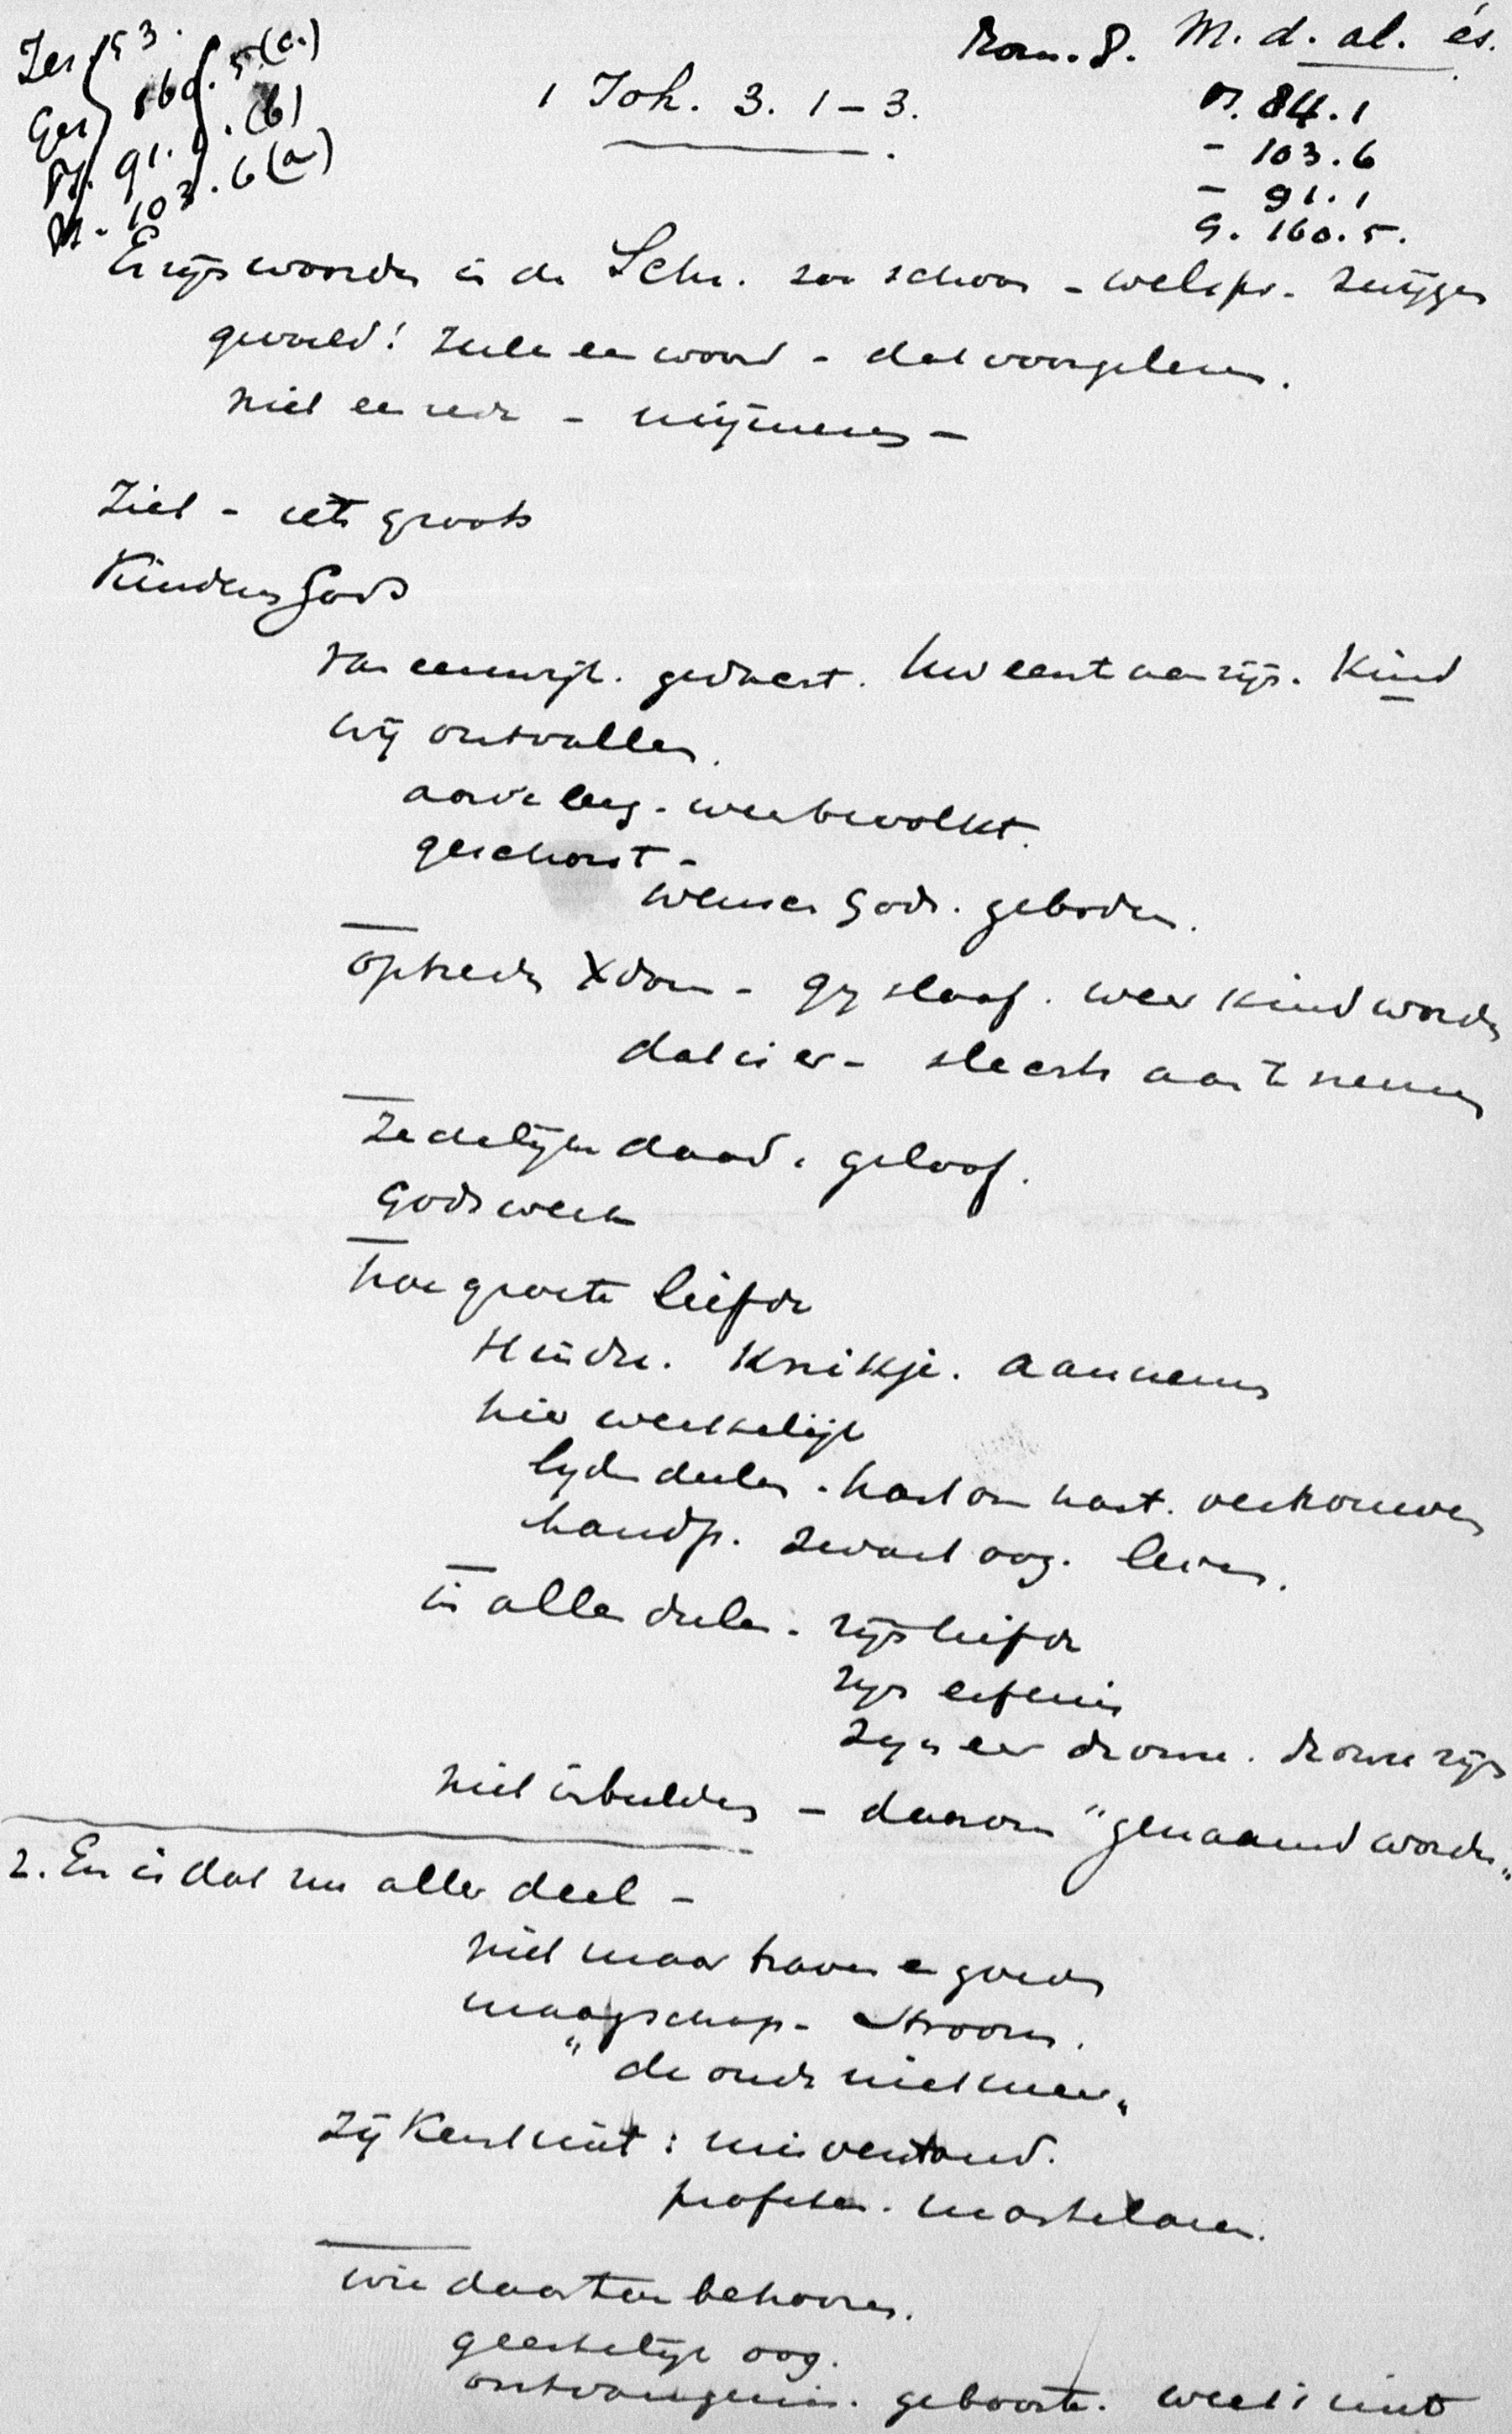 Jes. 53.
Gez. 160. 5 (a.)
Ps. 91. 1. (b)
Ps. 103. 6 (a)
Rom. 8. M. d. al. és.
1 Joh. 3. 1-3.
Ps. 84.1
- 103.6
- 91.1
G. 160.5.
Er zijn woorden in de Schr. zoo schoon - welspr. zwijgen
gevoeld! zulk een woord - dat voorgelezen.
niet een rede - mijmeren -
Ziet - iets groots
Kinderen Gods
van eeuwigh. gedacht. Uw eeut aanzijn. Kind
wij ontvallen.
aarde leeg - weer bevolkt.
geschorst -
wenser Gods. geboden.
optreden Xdom - gij slaaf. weer kind worden
dat is er - slechts aan te nemen
zedelijke daad. geloof.
Gods werk
hoe groote liefde
Heiden. Knikje. aannemen
hier werkelijk
lijden deelen. hart om hart. vertrouwen
handp. zwart oog. leven.
in alles deelen. zijn liefde
zijn erfenis
zijn eer troon. troon zijn
niet inbeelden - daarom "genaamd worden"
2. En is dat nu aller deel -
niet maar braven en goeden
maagschap - stroom.
"de oude niet meer"
Zij kent niet: misverstand.
profeten. martelaren.
wie daartoe behooren.
geestelijk oog.
ontvangenis. geboorte. weet niet